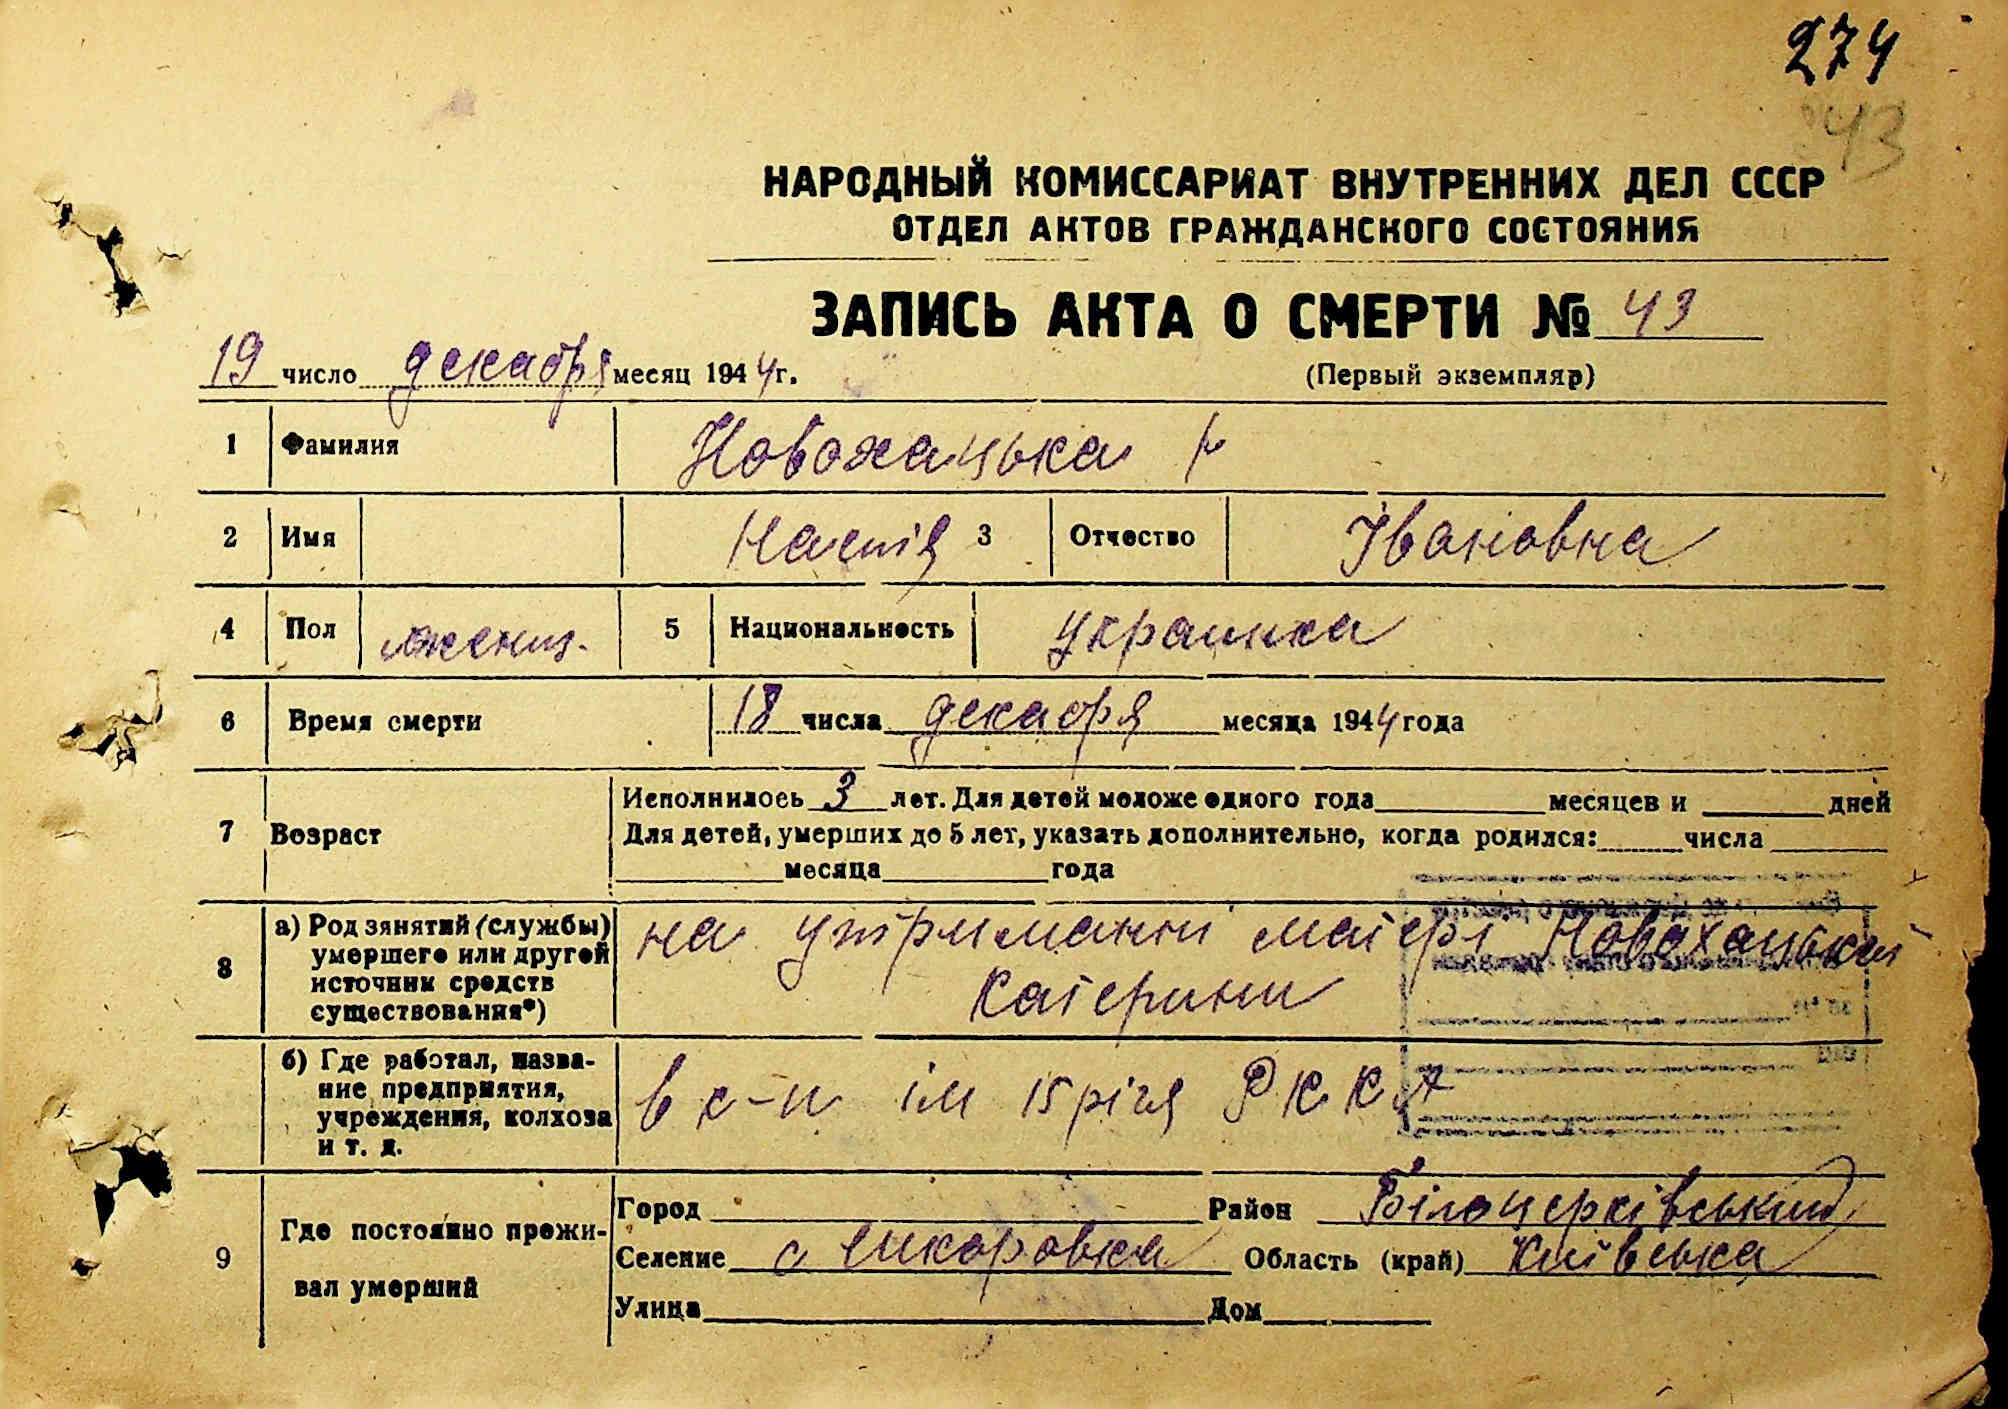 274
43
НАРОДНЫЙ КОМИССАРИАТ ВНУТРЕННИХ ДЕЛ СССР
ОТДЕЛ АКТОВ ГРАЖДАНСКОГО СОСТОЯНИЯ
ЗАПИСЬ АКТА О СМЕРТИ № 43
19 число декабря месяц 1944 г.
(Первый экземпляр)
1 Фамилия Новохацька
2 Имя Настія 3 Отчество Івановна
4 Пол женщ. 5 Национальность украинка
6 Время смерти 18 числа декабря месяца 1944 года
7 Возраст
Исполнилось 3 лет. Для детей моложе одного года месяцев и дней
Для детей, умерших до 5 лет, указать дополнительно, когда родился: числа
месяца года
8 а) Род занятий (службы) умершего или другой источник средств существования*)
на утриманни матері Новохацькии
Катерини
б) Где работал, название предприятия, учреждения, колхоза и т. д.
в к-п ім 15 річя Р К К А
9 Где постоянно проживал умерший
Город Район Білоцерківський
Селение с Шкоровка Область (край) Київська
Улица Дом